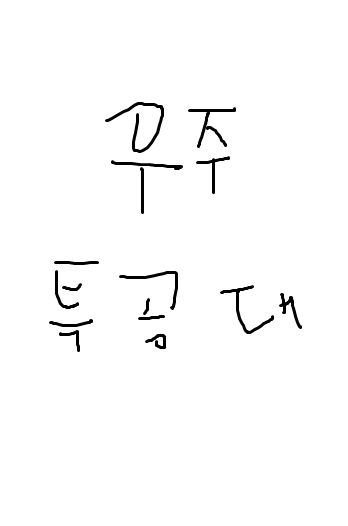 우주
특공대